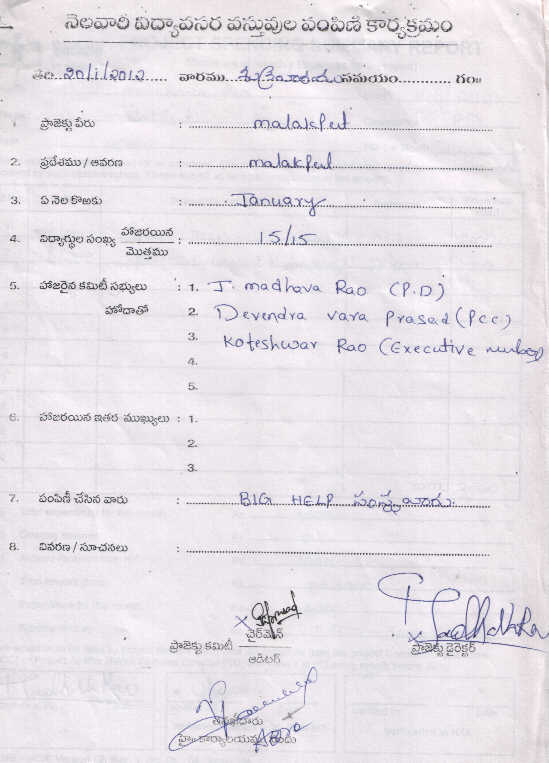 నెలవారీ విద్యావసర వస్తువుల పంపిణీ కార్యక్రమం
తేది. 20/1/2012 ...... వారము... శుక్రవారము సమయం............ గం॥
1. ప్రాజెక్టు పేరు : malakpet
2. ప్రదేశము / ఆవరణ : malakpet
3. ఏ నెల కొఱకు : January
4. విద్యార్థుల సంఖ్య హాజరయిన / మొత్తము : 15/15
5. హాజరైన కమిటీ సభ్యులు : 1. J. madhava Rao (P.D)
హోదాతో 2. Devendra vara Prasad (PCC.)
3. Koteshwar Rao (Executive member)
4.
5.
6. హాజరయిన ఇతర ముఖ్యులు : 1.
2.
3.
7. పంపిణీ చేసిన వారు : BIG HELP సంస్థ వారు.
8. వివరణ / సూచనలు :
ప్రాజెక్టు కమిటీ చైర్‌మెన్ / ఆడిటర్
ప్రాజెక్టు డైరెక్టర్